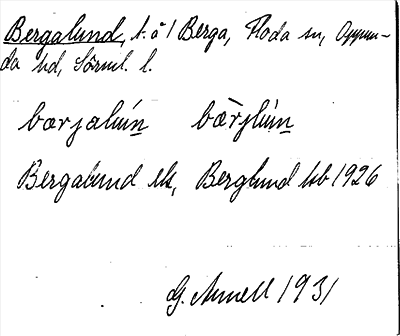 Bergalund, t. å 1 Berga, Floda sn, Oppun-
da hd, Sörml. l.
bærjalún bæ̀rjlún
Bergalund ek, Berglund kb 1926
G. Annell 1931